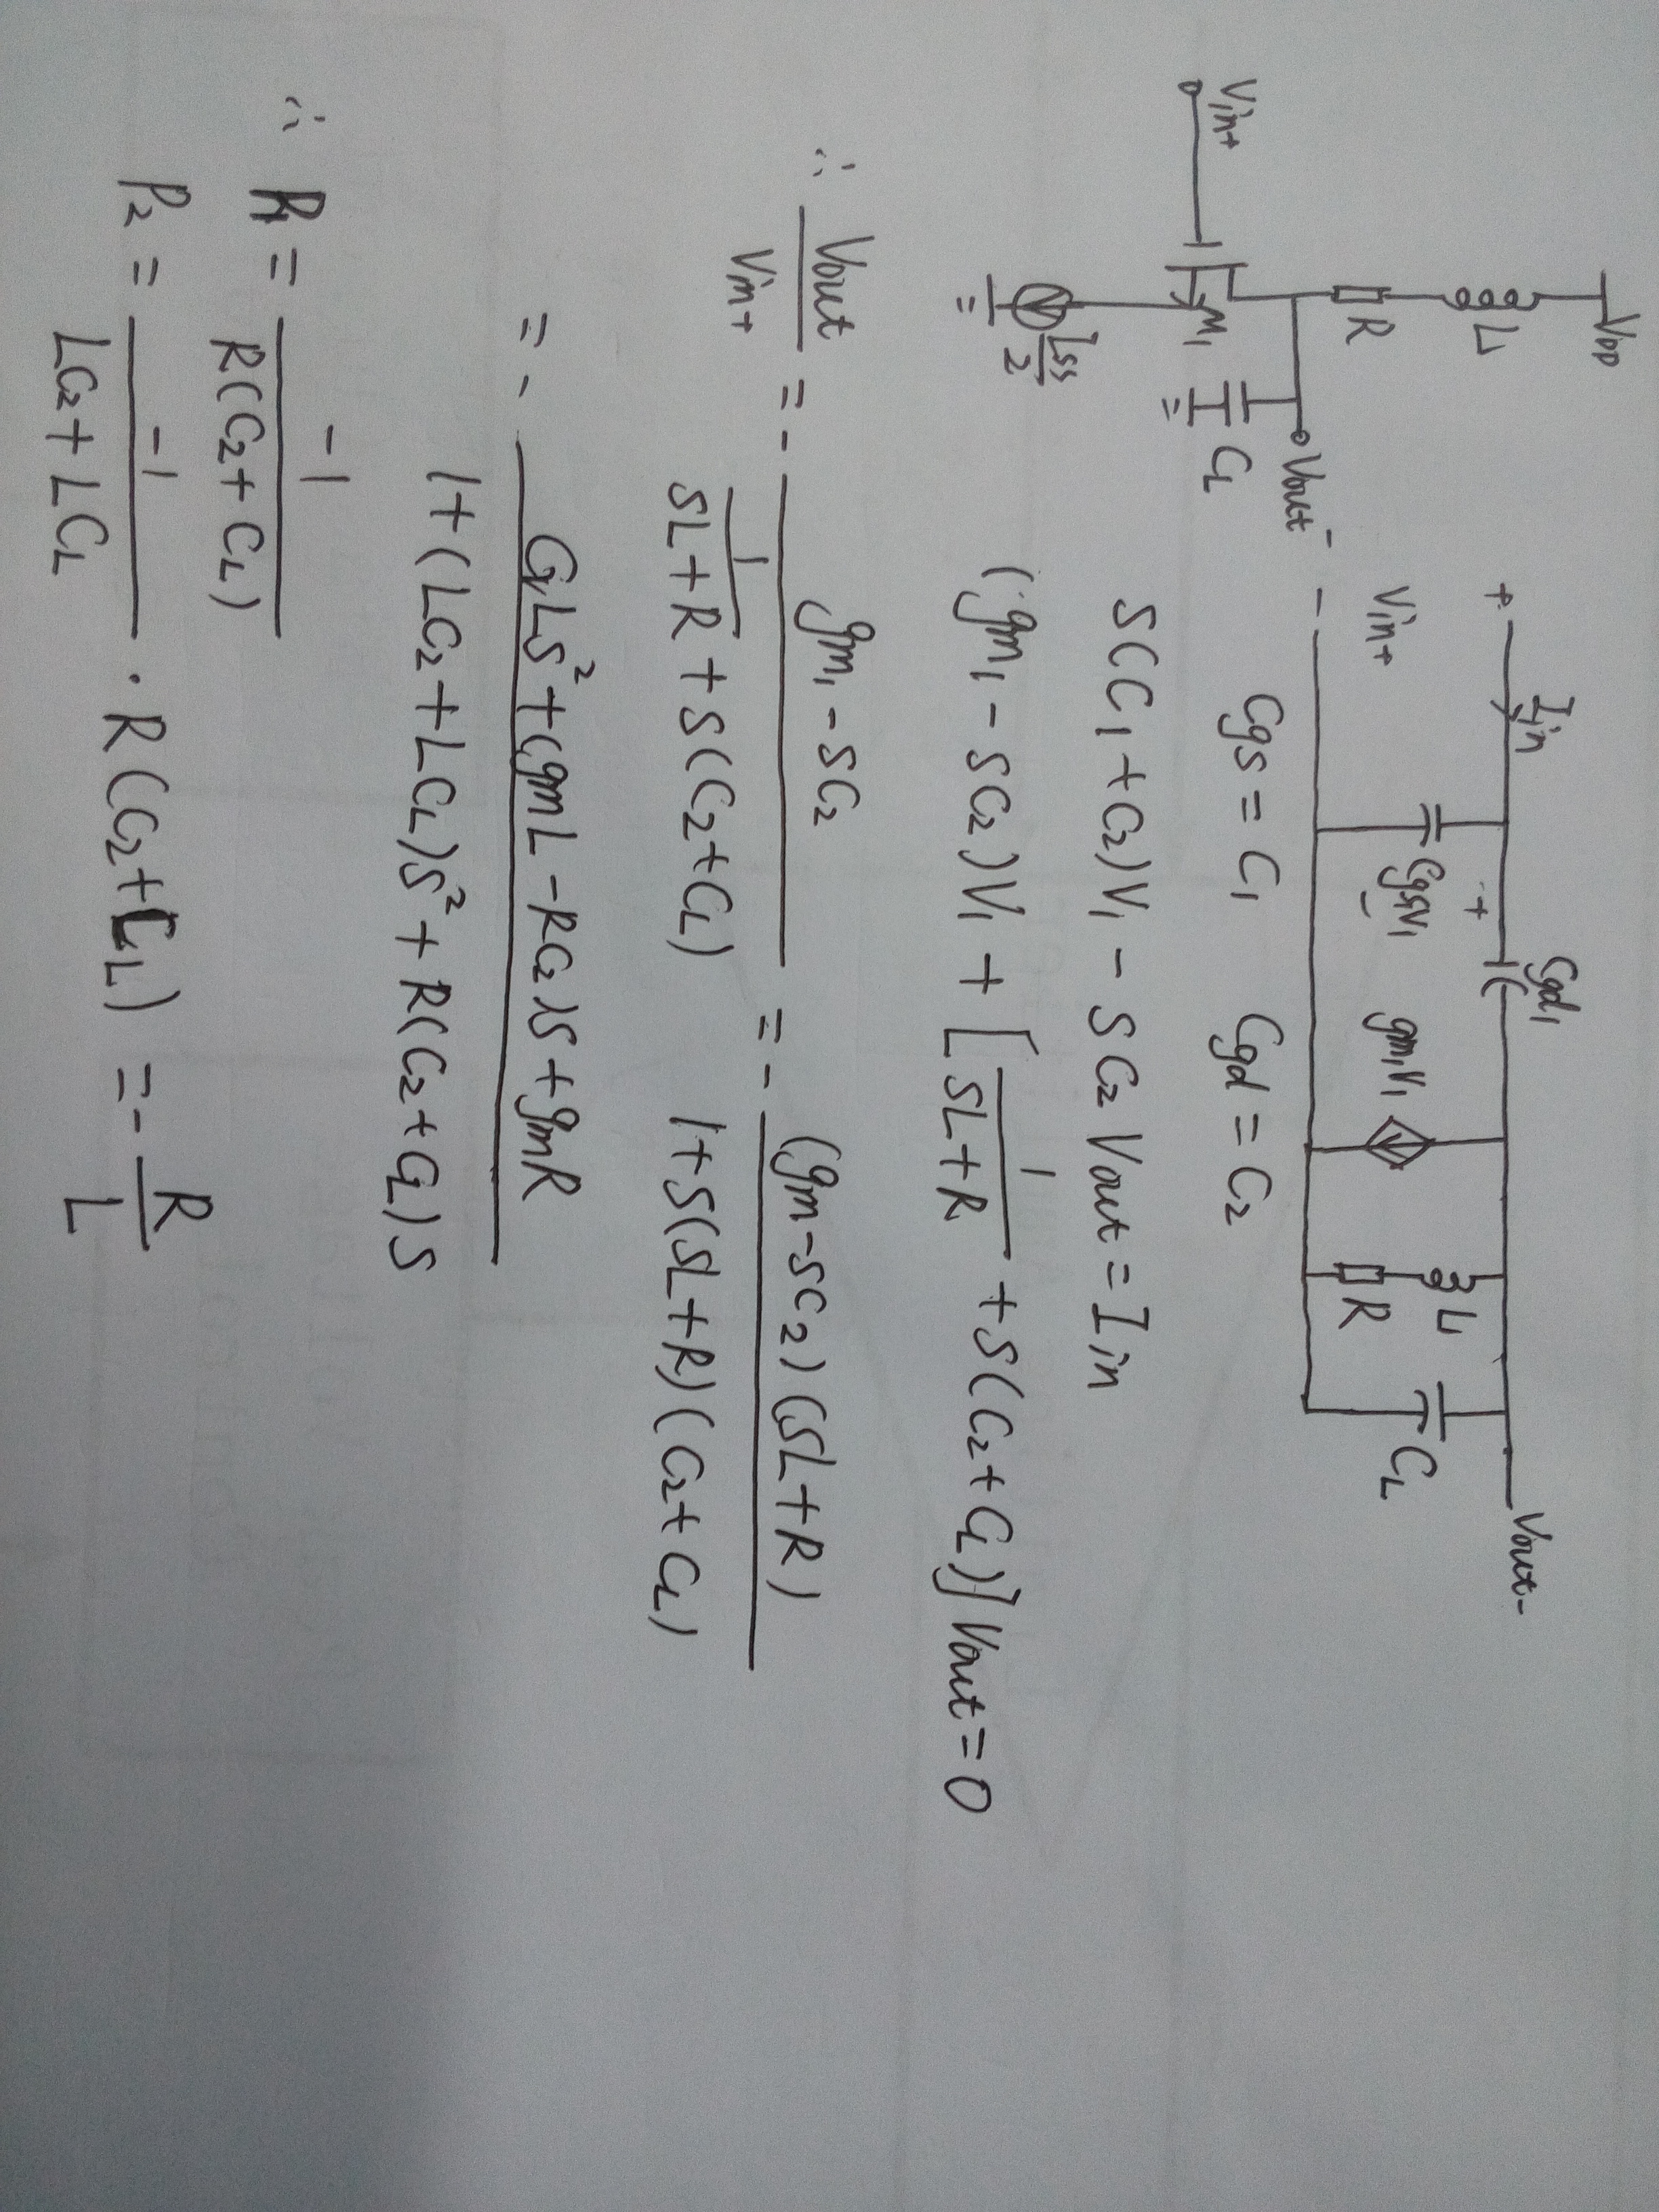 VDD
L
R
Vout-
Vin+
M1
CL
Iss/2
+ Iin Cgd1 Vout-
Vin+ + Cgsv1 - gm1v1 L R CL
-
Cgs = C1 Cgd = C2
S(C1+C2)V1 - SC2 Vout = Iin
(gm1 - SC2)V1 + [1/(SL+R) + S(C2+CL)] Vout = 0
∴ Vout/Vin+ = - (gm1 - SC2)/(1/(SL+R) + S(C2+CL)) = - (gm-SC2)(SL+R)/(1+S(SL+R)(C2+CL))
= - (C2LS²+(gmL-RC2)S+gmR)/(1+(LC2+LCL)S²+R(C2+CL)S)
∴ P1 = -1/(R(C2+CL))
P2 = -1/(LC2+LCL) · R(C2+CL) = - R/L